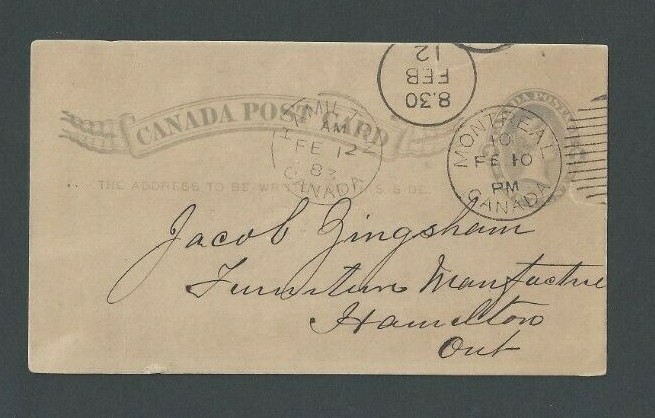 CANADA POST CARD
THE ADDRESS TO BE WRITTEN ON THIS SIDE.
HAMILTON
AM
FE 12
83
CANADA
8.30
FEB
12
MONTREAL
10
FE 10
PM
CANADA
CANADA POST
Jacob Gingsham
Furniture Manufactre
Hamilton
Ont